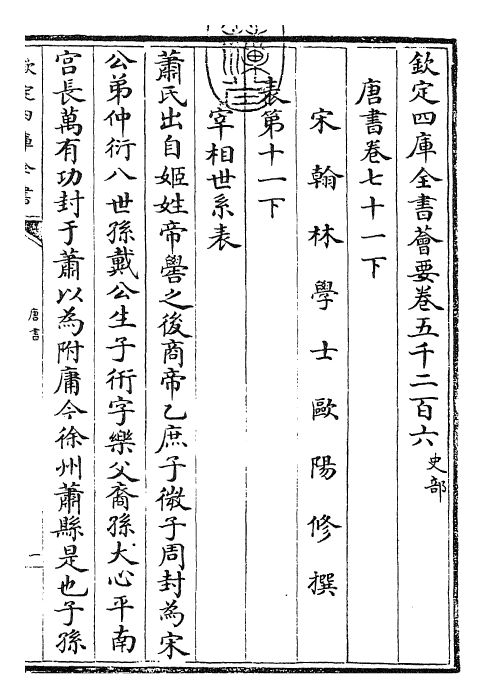 欽定四庫全書薈要卷五千二百六 史部
唐書卷七十一下
宋翰林學士歐陽修撰
表第十一下
宰相世系表
蕭氏出自姬姓帝嚳之後商帝乙庶子微子周封為宋
公弟仲衍八世孫戴公生子衎字樂父裔孫大心平南
宮長萬有功封于蕭以為附庸今徐州蕭縣是也子孫
欽定四庫全書
唐書
一